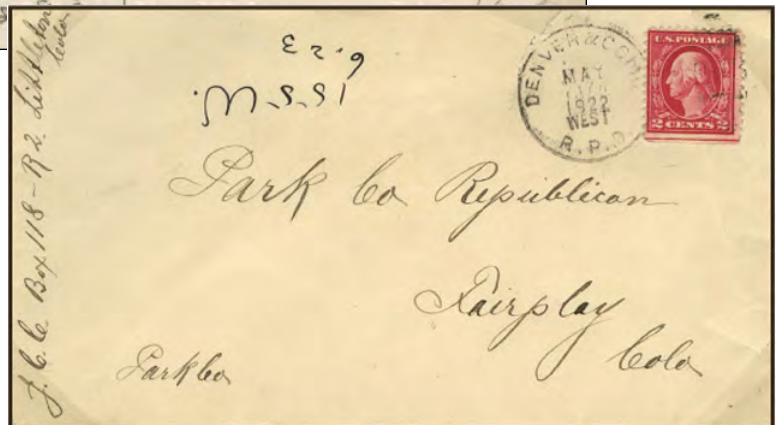 J. C. C. Box 118 - R2. Littleton
Colo
DENVER & COMO
MAY
1922
WEST
R.P.O.
U.S. POSTAGE
2 CENTS 2
Park Co Republican
Fairplay
Colo
Park Co